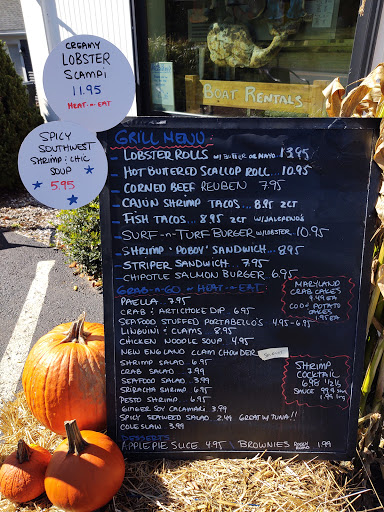 CREAMY
LOBSTER
SCAMPI
11.95
HEAT-n-EAT
SPICY
SOUTHWEST
SHRIMP & CHIC
SOUP
5.95
BOAT RENTALS
GRILL MENU:
- LOBSTER ROLLS w/ BUTTER OR MAYO 13.95
- HOT BUTTERED SCALLOP ROLL... 10.95
- CORNED BEEF REUBEN 7.95
- CAJUN SHRIMP TACOS... 8.95 2CT
- FISH TACOS... 8.95 2CT W/JALAPENO'S
- SURF-n-TURF BURGER W/LOBSTER. 10.95
- SHRIMP 'POBOY' SANDWICH... 8.95
- STRIPER SANDWICH... 7.95
- CHIPOTLE SALMON BURGER 6.95
GRAB-N-GO or HEAT-n-EAT
PAELLA... 7.95
CRAB & ARTICHOKE DIP. 6.95
SEAFOOD STUFFED PORTABELLO'S 4.95-6.95
LINGUINI & CLAMS 8.95
CHICKEN NOODLE SOUP 4.95
NEW ENGLAND CLAM CHOWDER
SHRIMP SALAD 6.95
CRAB SALAD 7.99
SEAFOOD SALAD 3.99
SRIRACHA SHRIMP 6.95
PESTO SHRIMP 6.95
GINGER SOY CALAMARI 3.99
SPICY SEAWEED SALAD 2.49 GREAT W/TUNA!!
COLE SLAW 3.99
DESSERTS
APPLE PIE SLICE 4.95 \ BROWNIES 1.99
MARYLAND
CRAB CAKES
4.49 EA
COD & POTATO
CAKES
1.95 EA
SHRIMP
COCKTAIL
6.98 1/2 lb
SAUCE